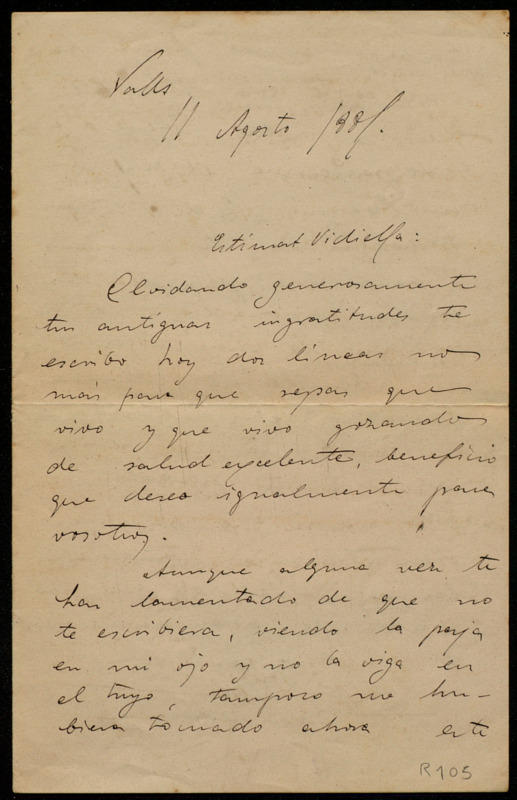 Valls
11 Agosto 188
Estimat Vidiella:
Olvidando generosamente
tus antiguas ingratitudes te
escribo hoy dos líneas no
más para que sepas que
vivo y que vivo gozando
de salud excelente, beneficio
que deseo igualmente para
vosotros.
Aunque alguna vez te
has lamentado de que no
te escribiera, viendo la paja
en mi ojo y no la viga en
el tuyo, tampoco me hu-
biera tomado ahora este
R 105